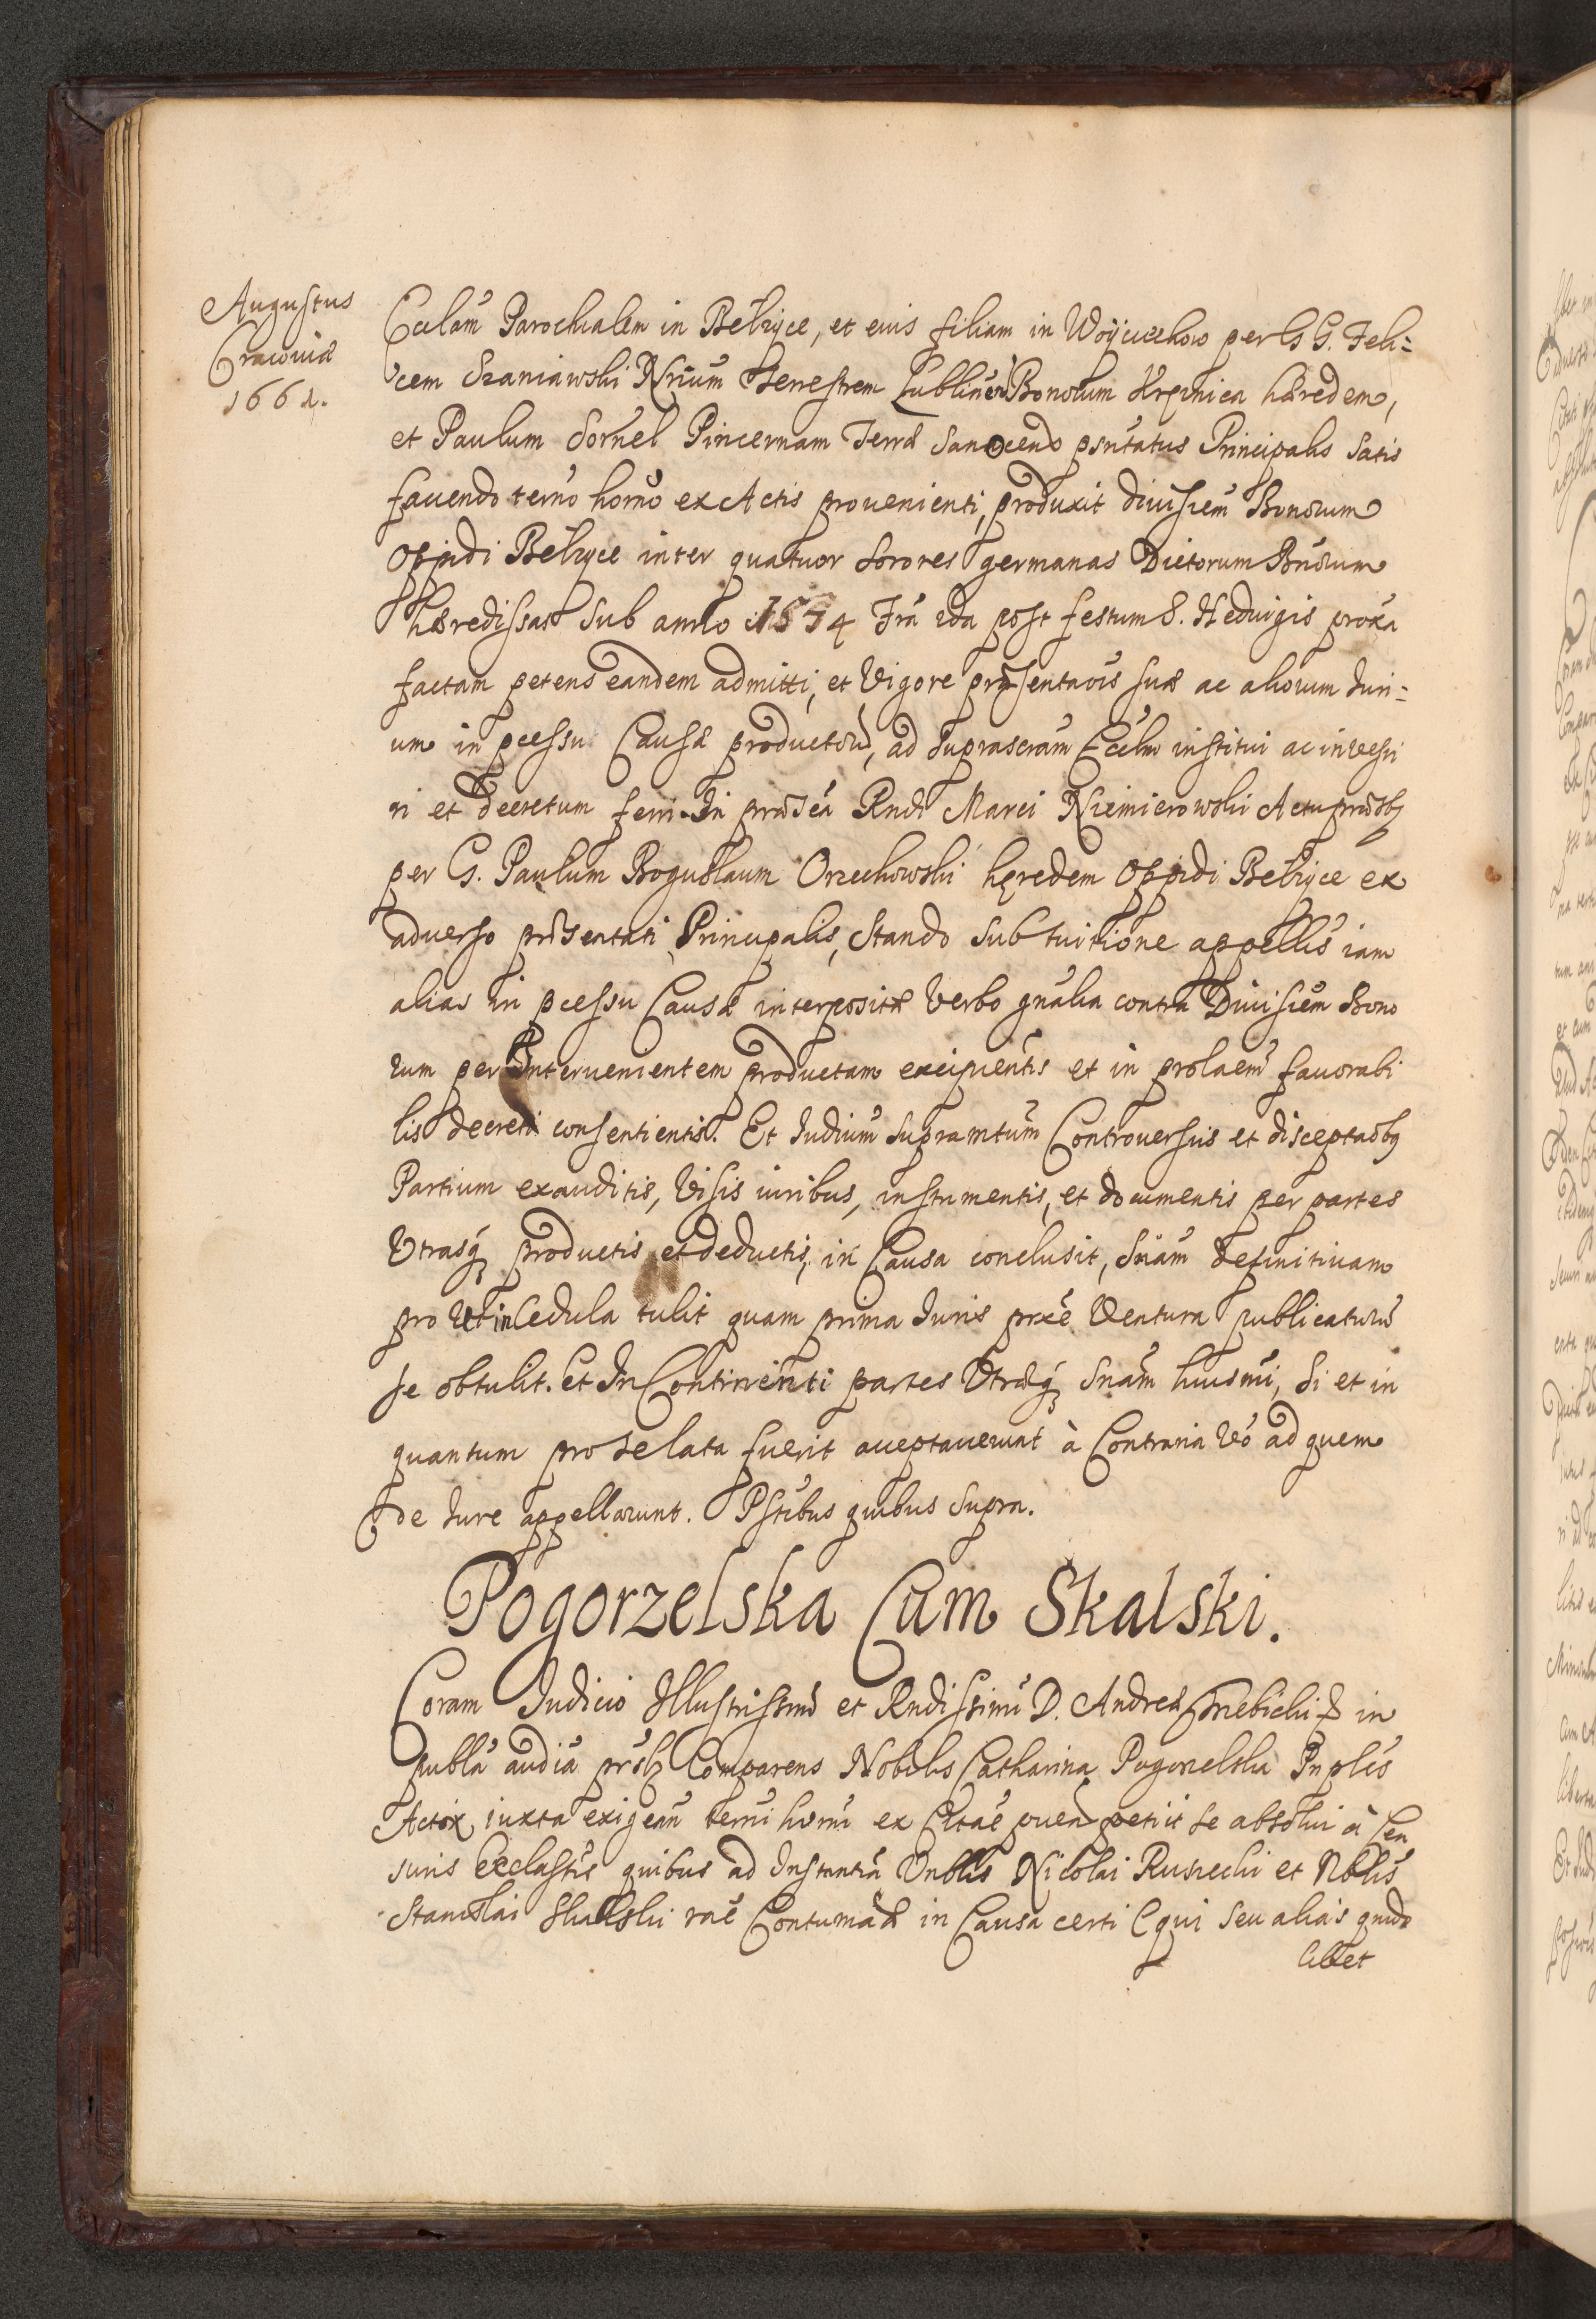 Augustus
Cracoviæ
1661.
Ecclam̃ Parochialem in Bełzyce, et eius filiam in Woÿciechow per G G. Feli=
cem Szaniawski Nrium Terrestrem Lublineñ Bonorum Krępnica hæredem,
et Paulum Sornel Pincernam Terræ Sanocens psntatus Principalis satis
faciendo termo horno ex Actis provenienti, produxit divisiem Bonorum
Oppidi Bełzyce inter quatuor sorores germanas Dictorum Bnorum
hæredissas sub anno 1554 Fra 2da post festum S. Heduigis proxa
factam petens eandem admitti, et vigore præsentaois suæ ac aliorum Juri=
um in pcessu Causæ productor, ad suprascram Ecclm institui ac investi
ri et decretum ferri. In præsea Rndi Marci Niemierowski Actu præsbj
per G. Paulum Boguslaum Orzechowski hęredem Oppidi Bełzyce ex
adverso præsentati Principalis, stando sub tuitione appellis iam
alias in pcessu Causæ interpositæ verbo gnalia contra Divisiem Bono
rum per Intervenientem productam excipientis et in prolaem favorabi
lis decreti consentientis. Et Judium supramtum Controversiis et disceptaobq
Partium exauditis, visis iuribus, instrumentis, et documentis per partes
Utrasq productis et deductis, in Causa conclusit, Snam definitivam
pro ut in Cedula tulit quam prima Juris prxe ventura publicatur
se obtulit. Et In Continenti partes Utræq Snam huiusmi, si et in
quantum pro se lata fuerit acceptaverunt à Contraria vo ad quem
de Jure appellarunt. Pstibus quibus supra.
Pogorzelska Cum Skalski.
Coram Judicio Illustrissmi et Rndissimi D. Andreæ Trzebicki in
publa audia Comparens Nobilis Catharina Pogorzelska Pnplis
Actrix iuxta exigeam termi horni ex Citae puen petiit se absolui à Cen
suris Ecclasticis quibus ad Instantia Unblis Nicolai Rusiecki et Nblis
Stanislai Skalski rae Contumaæ in Causa certi Equi seu alias quido
libet